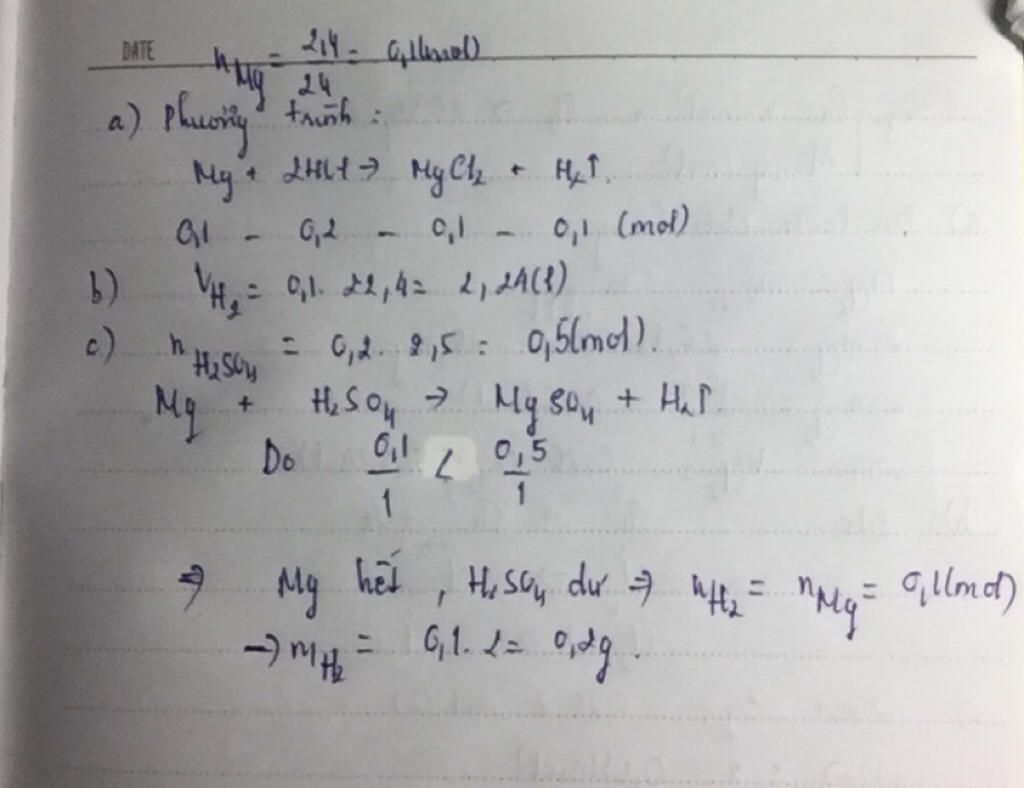 DATE
n_Mg = 2,4/24 = 0,1(mol)
a) Phương trình :
Mg + 2HCl → MgCl₂ + H₂↑.
0,1 - 0,2 - 0,1 - 0,1 (mol)
b) V_H₂ = 0,1. 22,4 = 2,24(l)
c) n_H₂SO₄ = 0,2. 2,5 = 0,5(mol).
Mg + H₂SO₄ → MgSO₄ + H₂↑.
Do 0,1/1 < 0,5/1
⇒ Mg hết, H₂SO₄ dư ⇒ n_H₂ = n_Mg = 0,1(mol)
→ m_H₂ = 0,1. 2 = 0,2g.